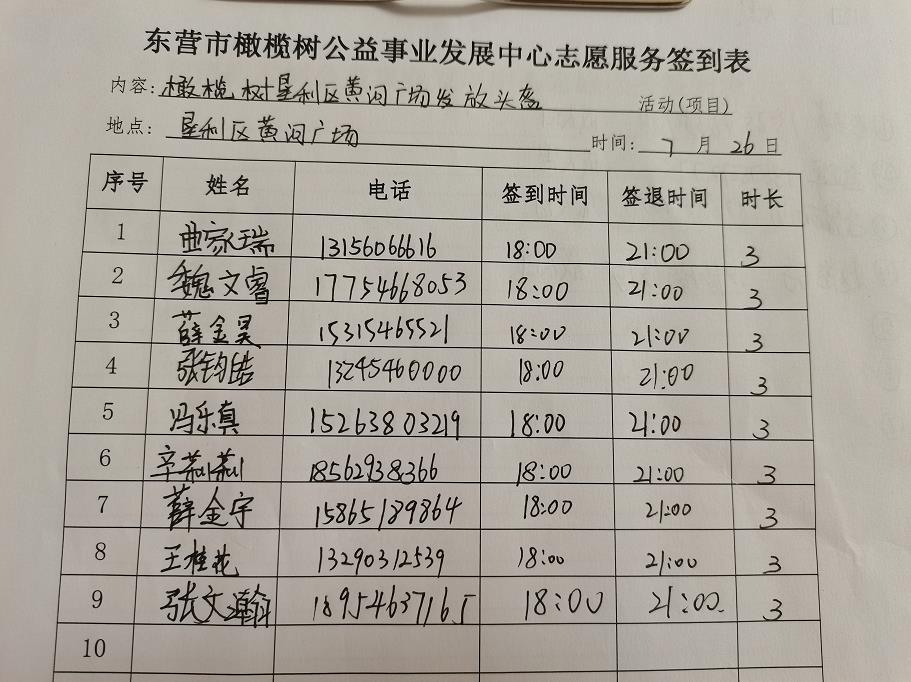 东营市橄榄树公益事业发展中心志愿服务签到表
内容: 橄榄树垦利区黄河广场发放头盔 活动(项目)
地点: 垦利区黄河广场 时间: 7 月 26 日
序号 姓名 电话 签到时间 签退时间 时长
1 曲家瑞 13156066616 18:00 21:00 3
2 魏文睿 17754668053 18:00 21:00 3
3 薛金昊 15315465521 18:00 21:00 3
4 张钧皓 13245460000 18:00 21:00 3
5 冯乐真 15263803219 18:00 21:00 3
6 辛荆荆 18562938366 18:00 21:00 3
7 薛金宇 15865189864 18:00 21:00 3
8 王桂花 13290312539 18:00 21:00 3
9 张文瀚 18954637165 18:00 21:00. 3
10